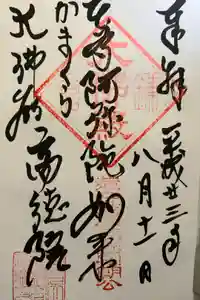 奉拝 平成廿三年
八月十一日
本尊阿弥陀如来
かまくら
大佛殿 高徳院